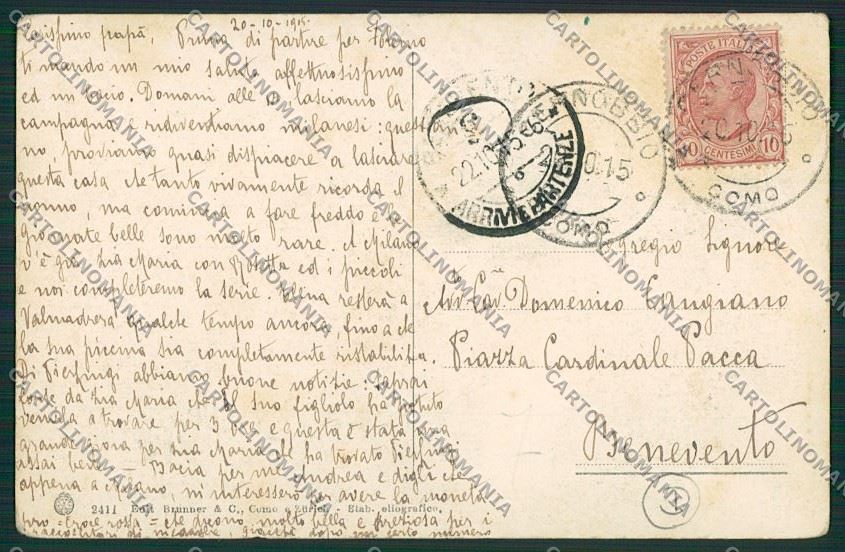 20-10-1915-
Carissimo papà, Prima di partire per Milano
ti mando un mio saluto affettuosissimo
ed un bacio. Domani alle 9 lasciamo la
campagna e ridiventiamo milanesi: quest'an
no, proviamo quasi dispiacere a lasciare
questa casa che tanto vivamente ricorda il
nonno, ma comincia a fare freddo e le
giornate belle sono molto rare. A Milano
v'è già zia Maria con Rosetta ed i piccoli
e noi completeremo la serie. resterà a
Valmadrera qualche tempo ancora, fino a che
la sua piccina sia completamente ristabilita.
Di Pierluigi abbiamo buone notizie: saprai
forse da zia Maria che il suo figliolo ha potuto
venirla a trovare per 3 ore e questa è stata una
grande gioia per zia Maria che ha trovato Pierluigi
assai bene. — Bacia per me Andrea e digli che
appena a Milano, m'interesserò per avere la moneta
pro-Croce rossa = che dicono molto bella e preziosa per i
raccoglitori di medaglie, giacchè dopo un certo numero
2411 Edit. Brunner & C., Como e Zürich - Stab. eliografico.
POSTE ITALIANE
10 CENTESIMI 10
CERNOBBIO
COMO
20.10.15
CERNOBBIO
COMO
BENEVENTO
22.10.15
ARRIVI E PARTENZE
Egregio Signore
Avv. Cav. Domenico Cangiano
Piazza Cardinale Pacca
Benevento
CARTOLINOMANIA